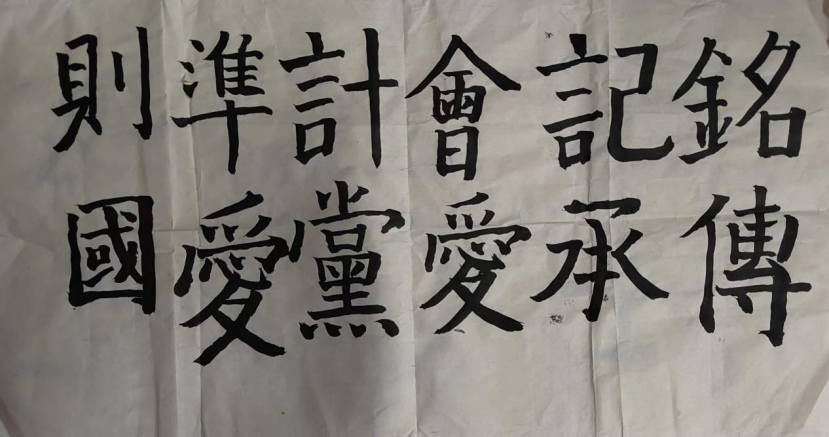 銘記會計準則
傳承愛黨愛國